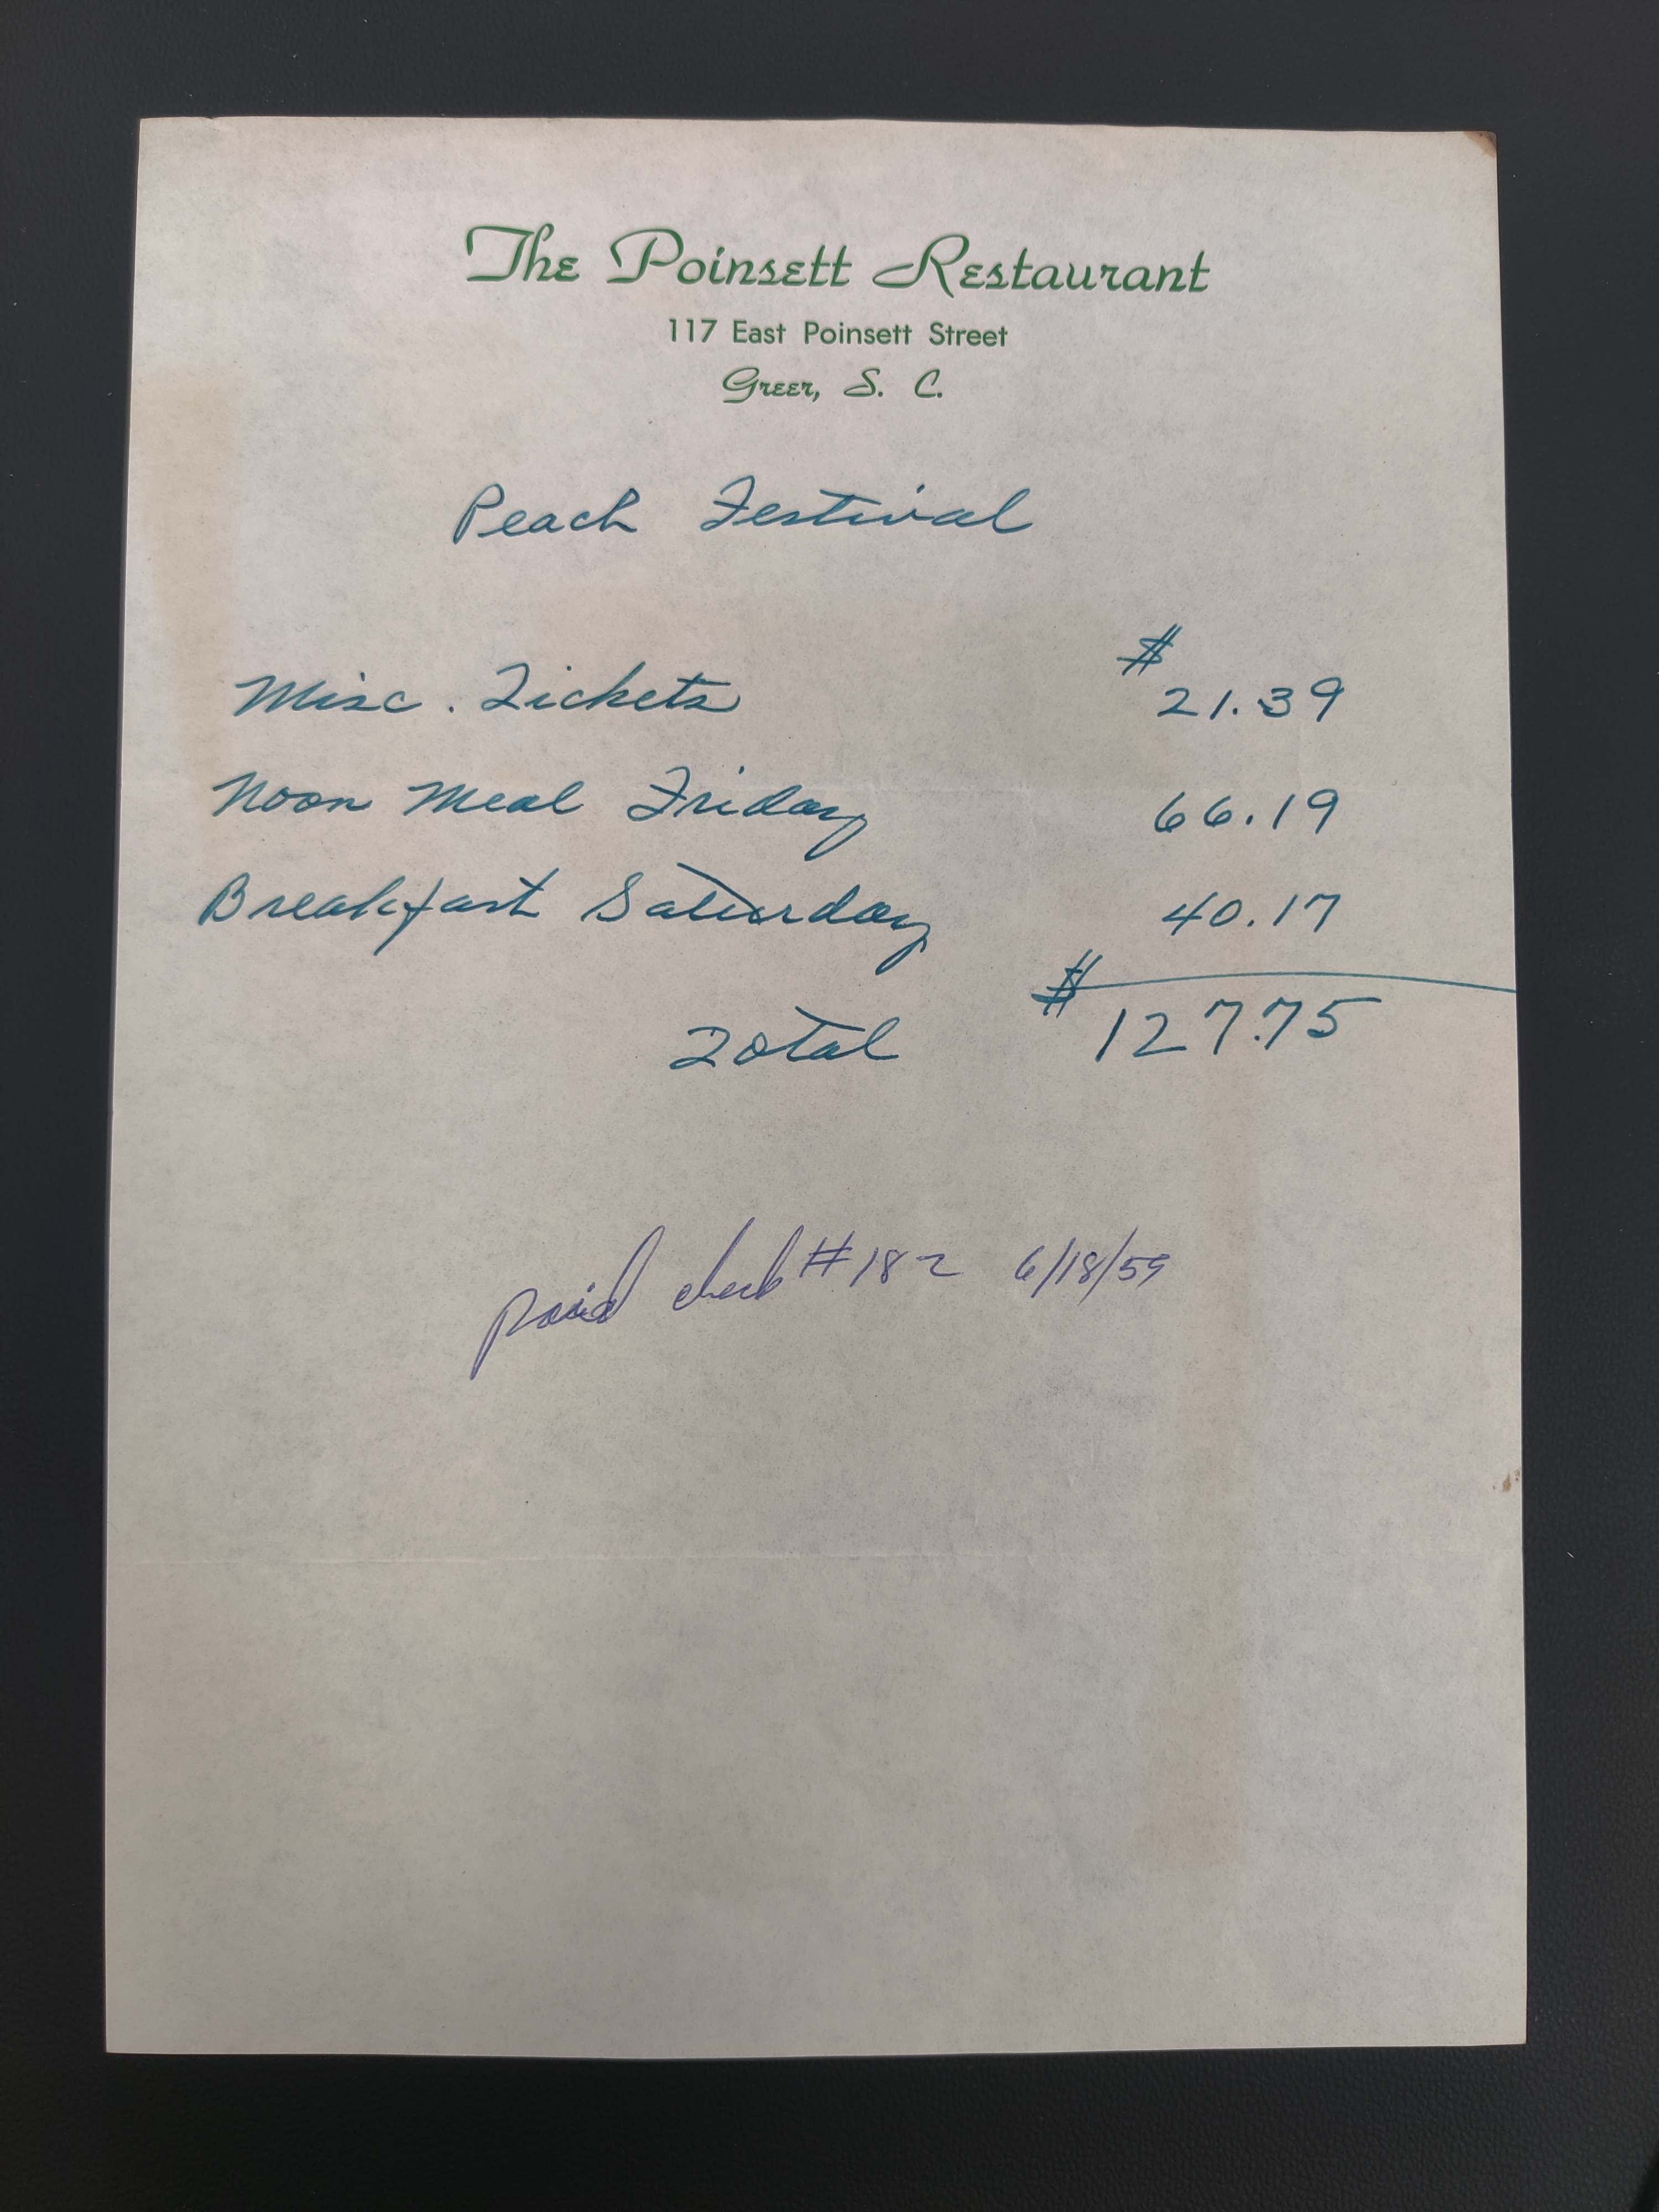 The Poinsett Restaurant
117 East Poinsett Street
Greer, S. C.
Peach Festival
Misc. Tickets $ 21.39
Noon Meal Friday 66.19
Breakfast Saturday 40.17
Total $ 127.75
paid check #182 6/18/59